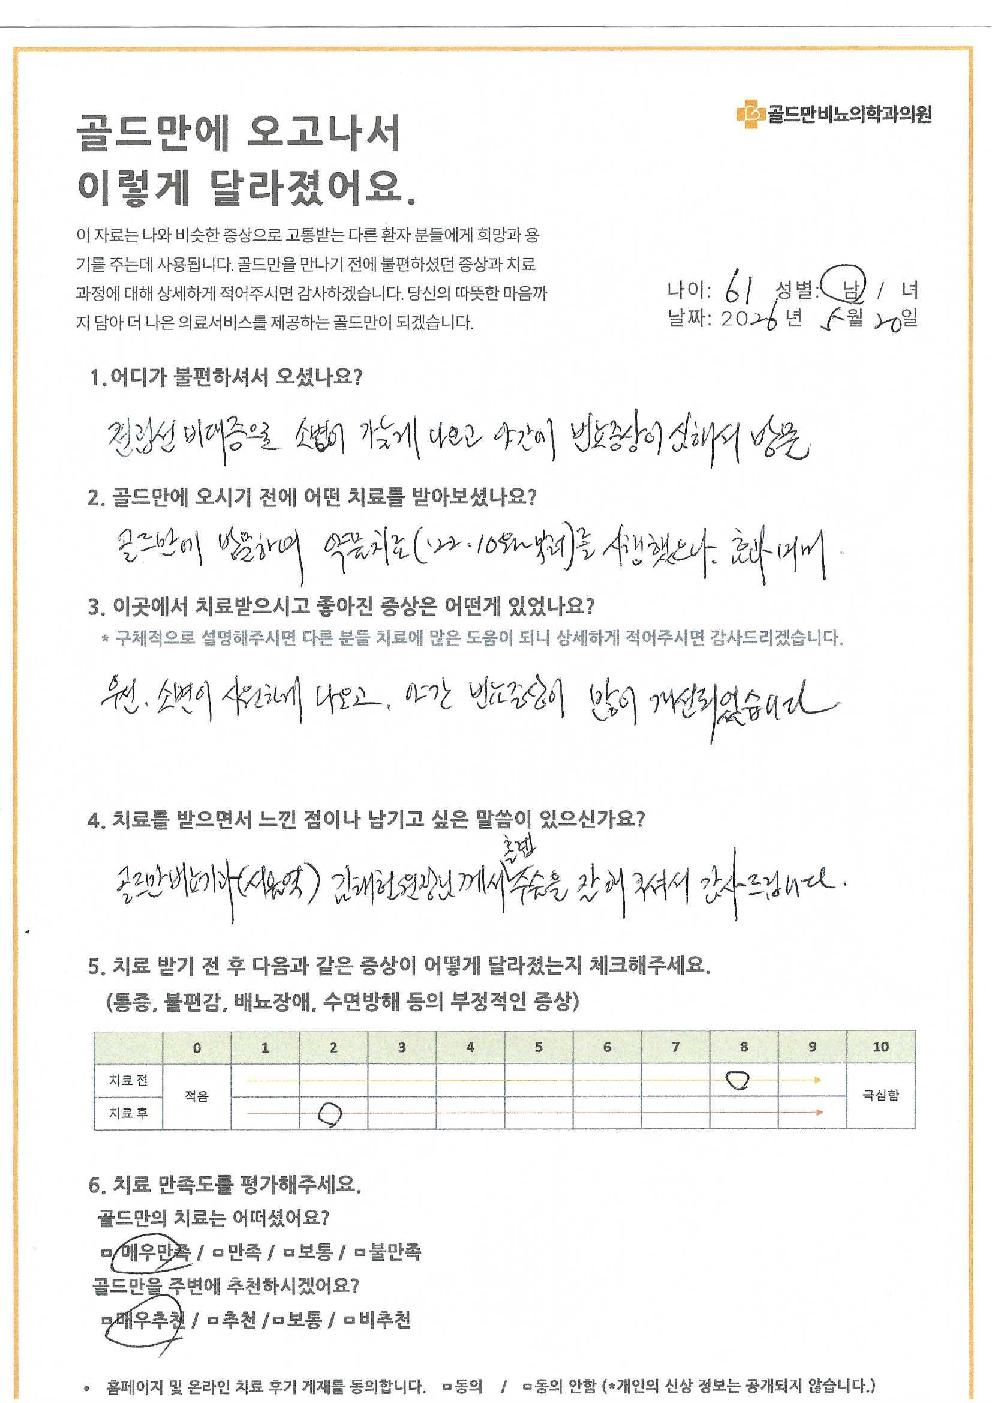 골드만비뇨의학과의원
골드만에 오고나서
이렇게 달라졌어요.
이 자료는 나와 비슷한 증상으로 고통받는 다른 환자 분들에게 희망과 용
기를 주는데 사용됩니다. 골드만을 만나기 전에 불편하셨던 증상과 치료
과정에 대해 상세하게 적어주시면 감사하겠습니다. 당신의 따뜻한 마음까
지 담아 더 나은 의료서비스를 제공하는 골드만이 되겠습니다.
나이: 61 성별: 남 / 녀
날짜: 2026년 5월 20일
1. 어디가 불편하셔서 오셨나요?
전립선 비대증으로 소변이 가늘게 나오고 야간에 빈뇨증상이 심해서 방문
2. 골드만에 오시기 전에 어떤 치료를 받아보셨나요?
골드만에 방문하여 약물치료('22.10월부터)를 시행했으나. 효과 미미
3. 이곳에서 치료받으시고 좋아진 증상은 어떤게 있었나요?
* 구체적으로 설명해주시면 다른 분들 치료에 많은 도움이 되니 상세하게 적어주시면 감사드리겠습니다.
우선. 소변이 시원하게 나오고, 야간 빈뇨증상이 많이 개선되었습니다
4. 치료를 받으면서 느낀 점이나 남기고 싶은 말씀이 있으신가요?
홀렙
골드만비뇨기과(서울역) 김태헌원장님께서 수술을 잘해주셔서 감사드립니다.
5. 치료 받기 전 후 다음과 같은 증상이 어떻게 달라졌는지 체크해주세요.
(통증, 불편감, 배뇨장애, 수면방해 등의 부정적인 증상)
0 1 2 3 4 5 6 7 8 9 10
치료 전
적음
극심함
치료 후
6. 치료 만족도를 평가해주세요.
골드만의 치료는 어떠셨어요?
□ 매우만족 / □ 만족 / □ 보통 / □ 불만족
골드만을 주변에 추천하시겠어요?
□ 매우추천 / □ 추천 / □ 보통 / □ 비추천
• 홈페이지 및 온라인 치료 후기 게재를 동의합니다. □ 동의 / □ 동의 안함 (*개인의 신상 정보는 공개되지 않습니다.)